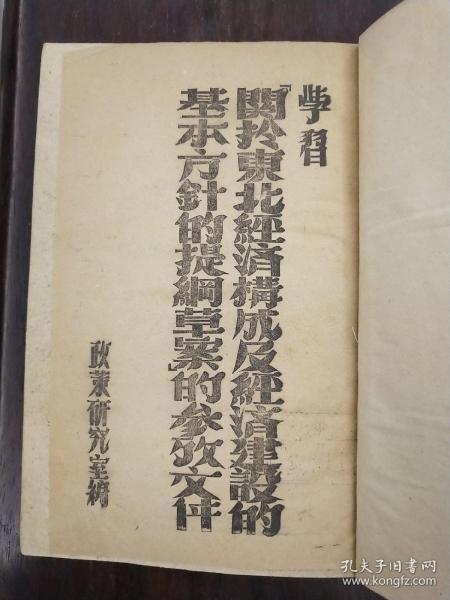 学習
「關於東北經済構成及經済建設的
基本方針的提綱草案」的參攷文件
政策研究室编
孔夫子旧书网
www.kongfz.com